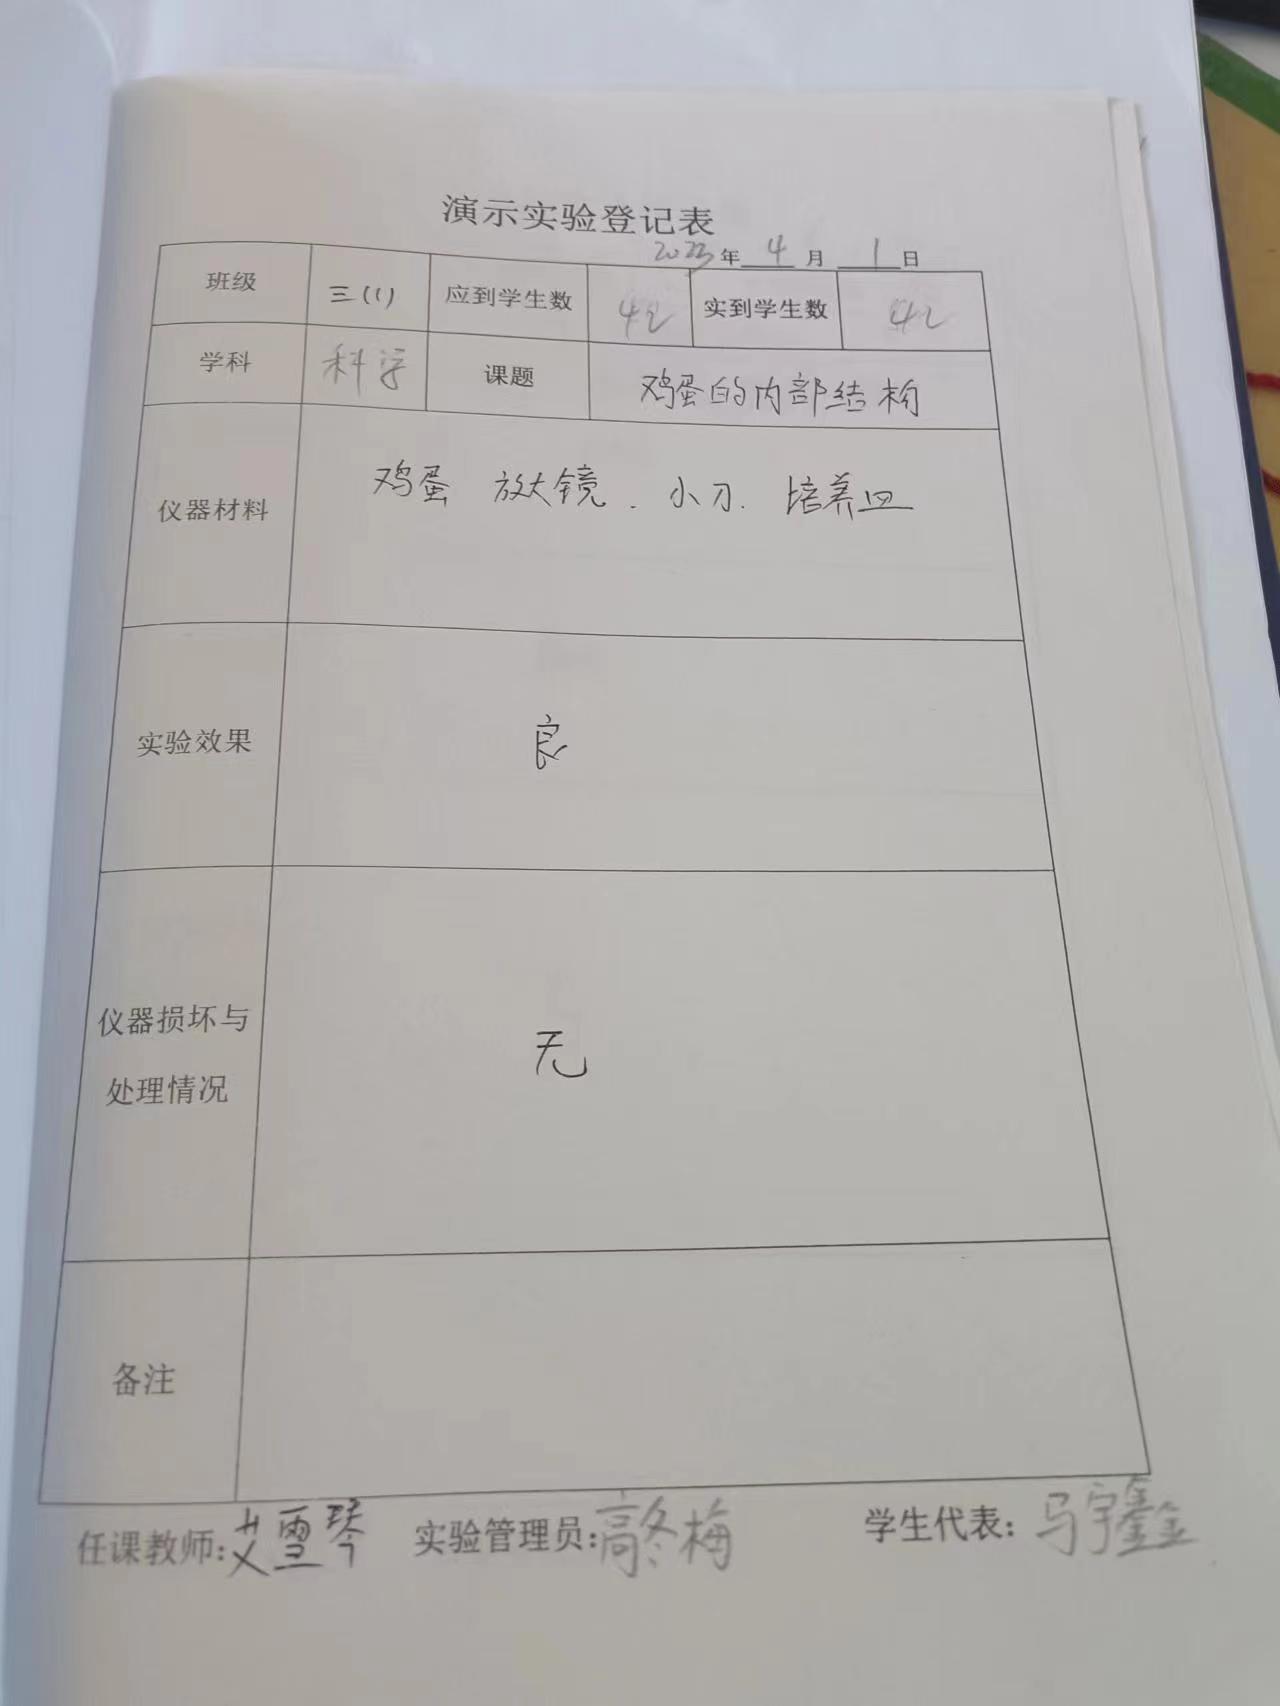 演示实验登记表
2023年 4 月 1 日
班级 三(1) 应到学生数 42 实到学生数 42
学科 科学 课题 鸡蛋的内部结构
仪器材料 鸡蛋 放大镜. 小刀. 培养皿
实验效果 良
仪器损坏与
处理情况 无
备注
任课教师:艾雪琴 实验管理员:高冬梅 学生代表:马宇鑫